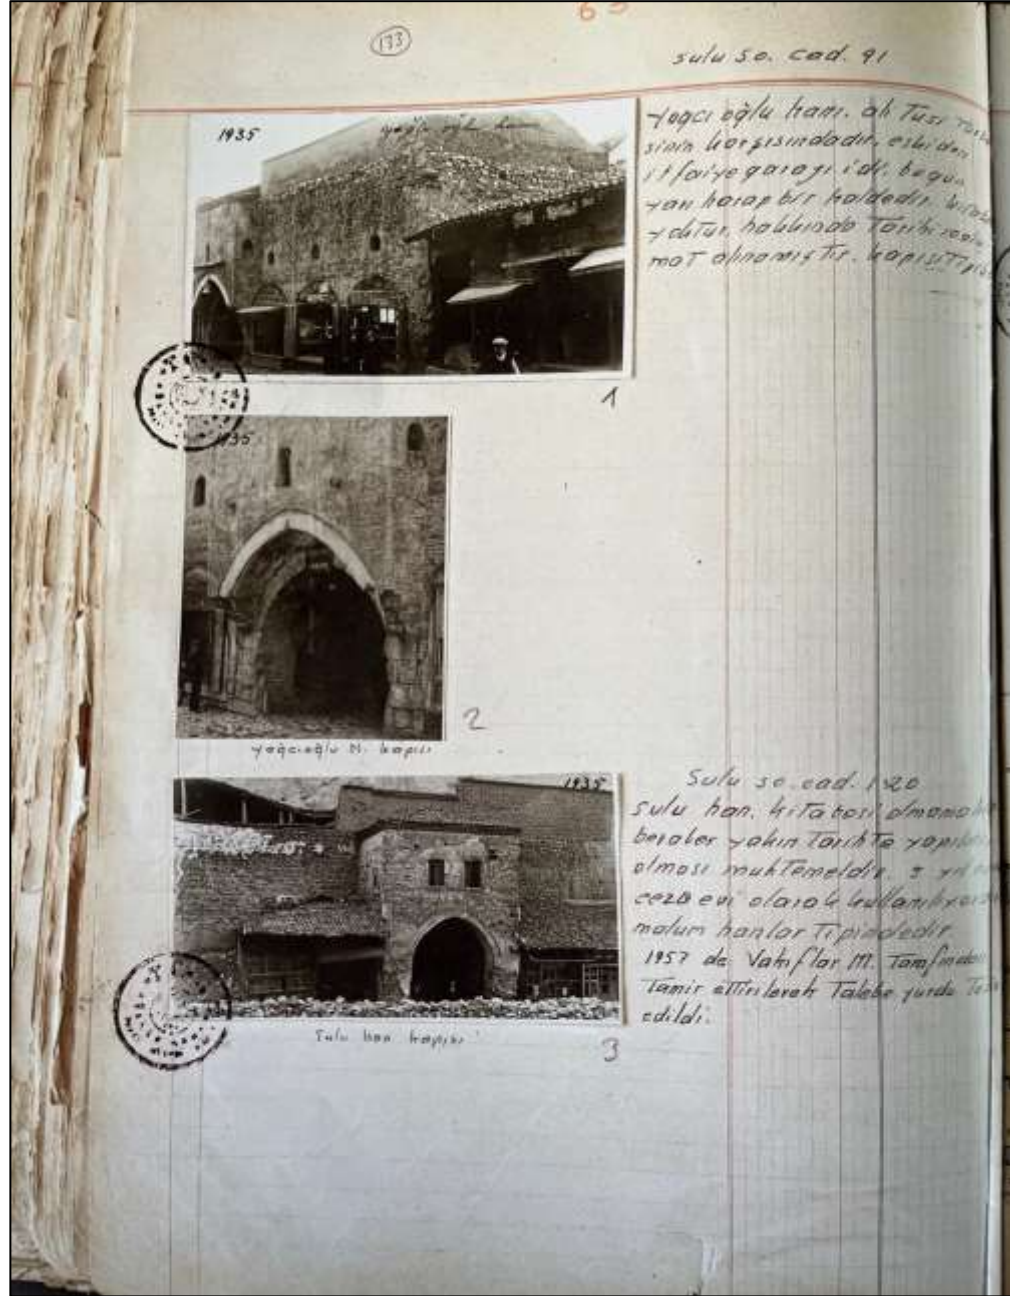 133
sulu so. cad. 91
1935
yağcı oğlu hanı
yağcı oğlu hanı. ali Tusi
sinin karşısındadır. eskiden
itfaiye garajı idi. bugün
yan harap bir haldedir.
yoktur. hakkında Tarihi
mat alınamıştır. kapısı
1
35
2
yağcıoğlu H. kapısı
1935
Sulu so. cad. 120
sulu han. kitabesi olmama
beraber yakın Tarihte
olması muhtemeldir.
ceza evi olarak
malum hanlar Tipindedir
1957 de Vakıflar M. Tarafından
Tamir ettirilerek Talebe yurdu
edildi.
Sulu han kapısı
3